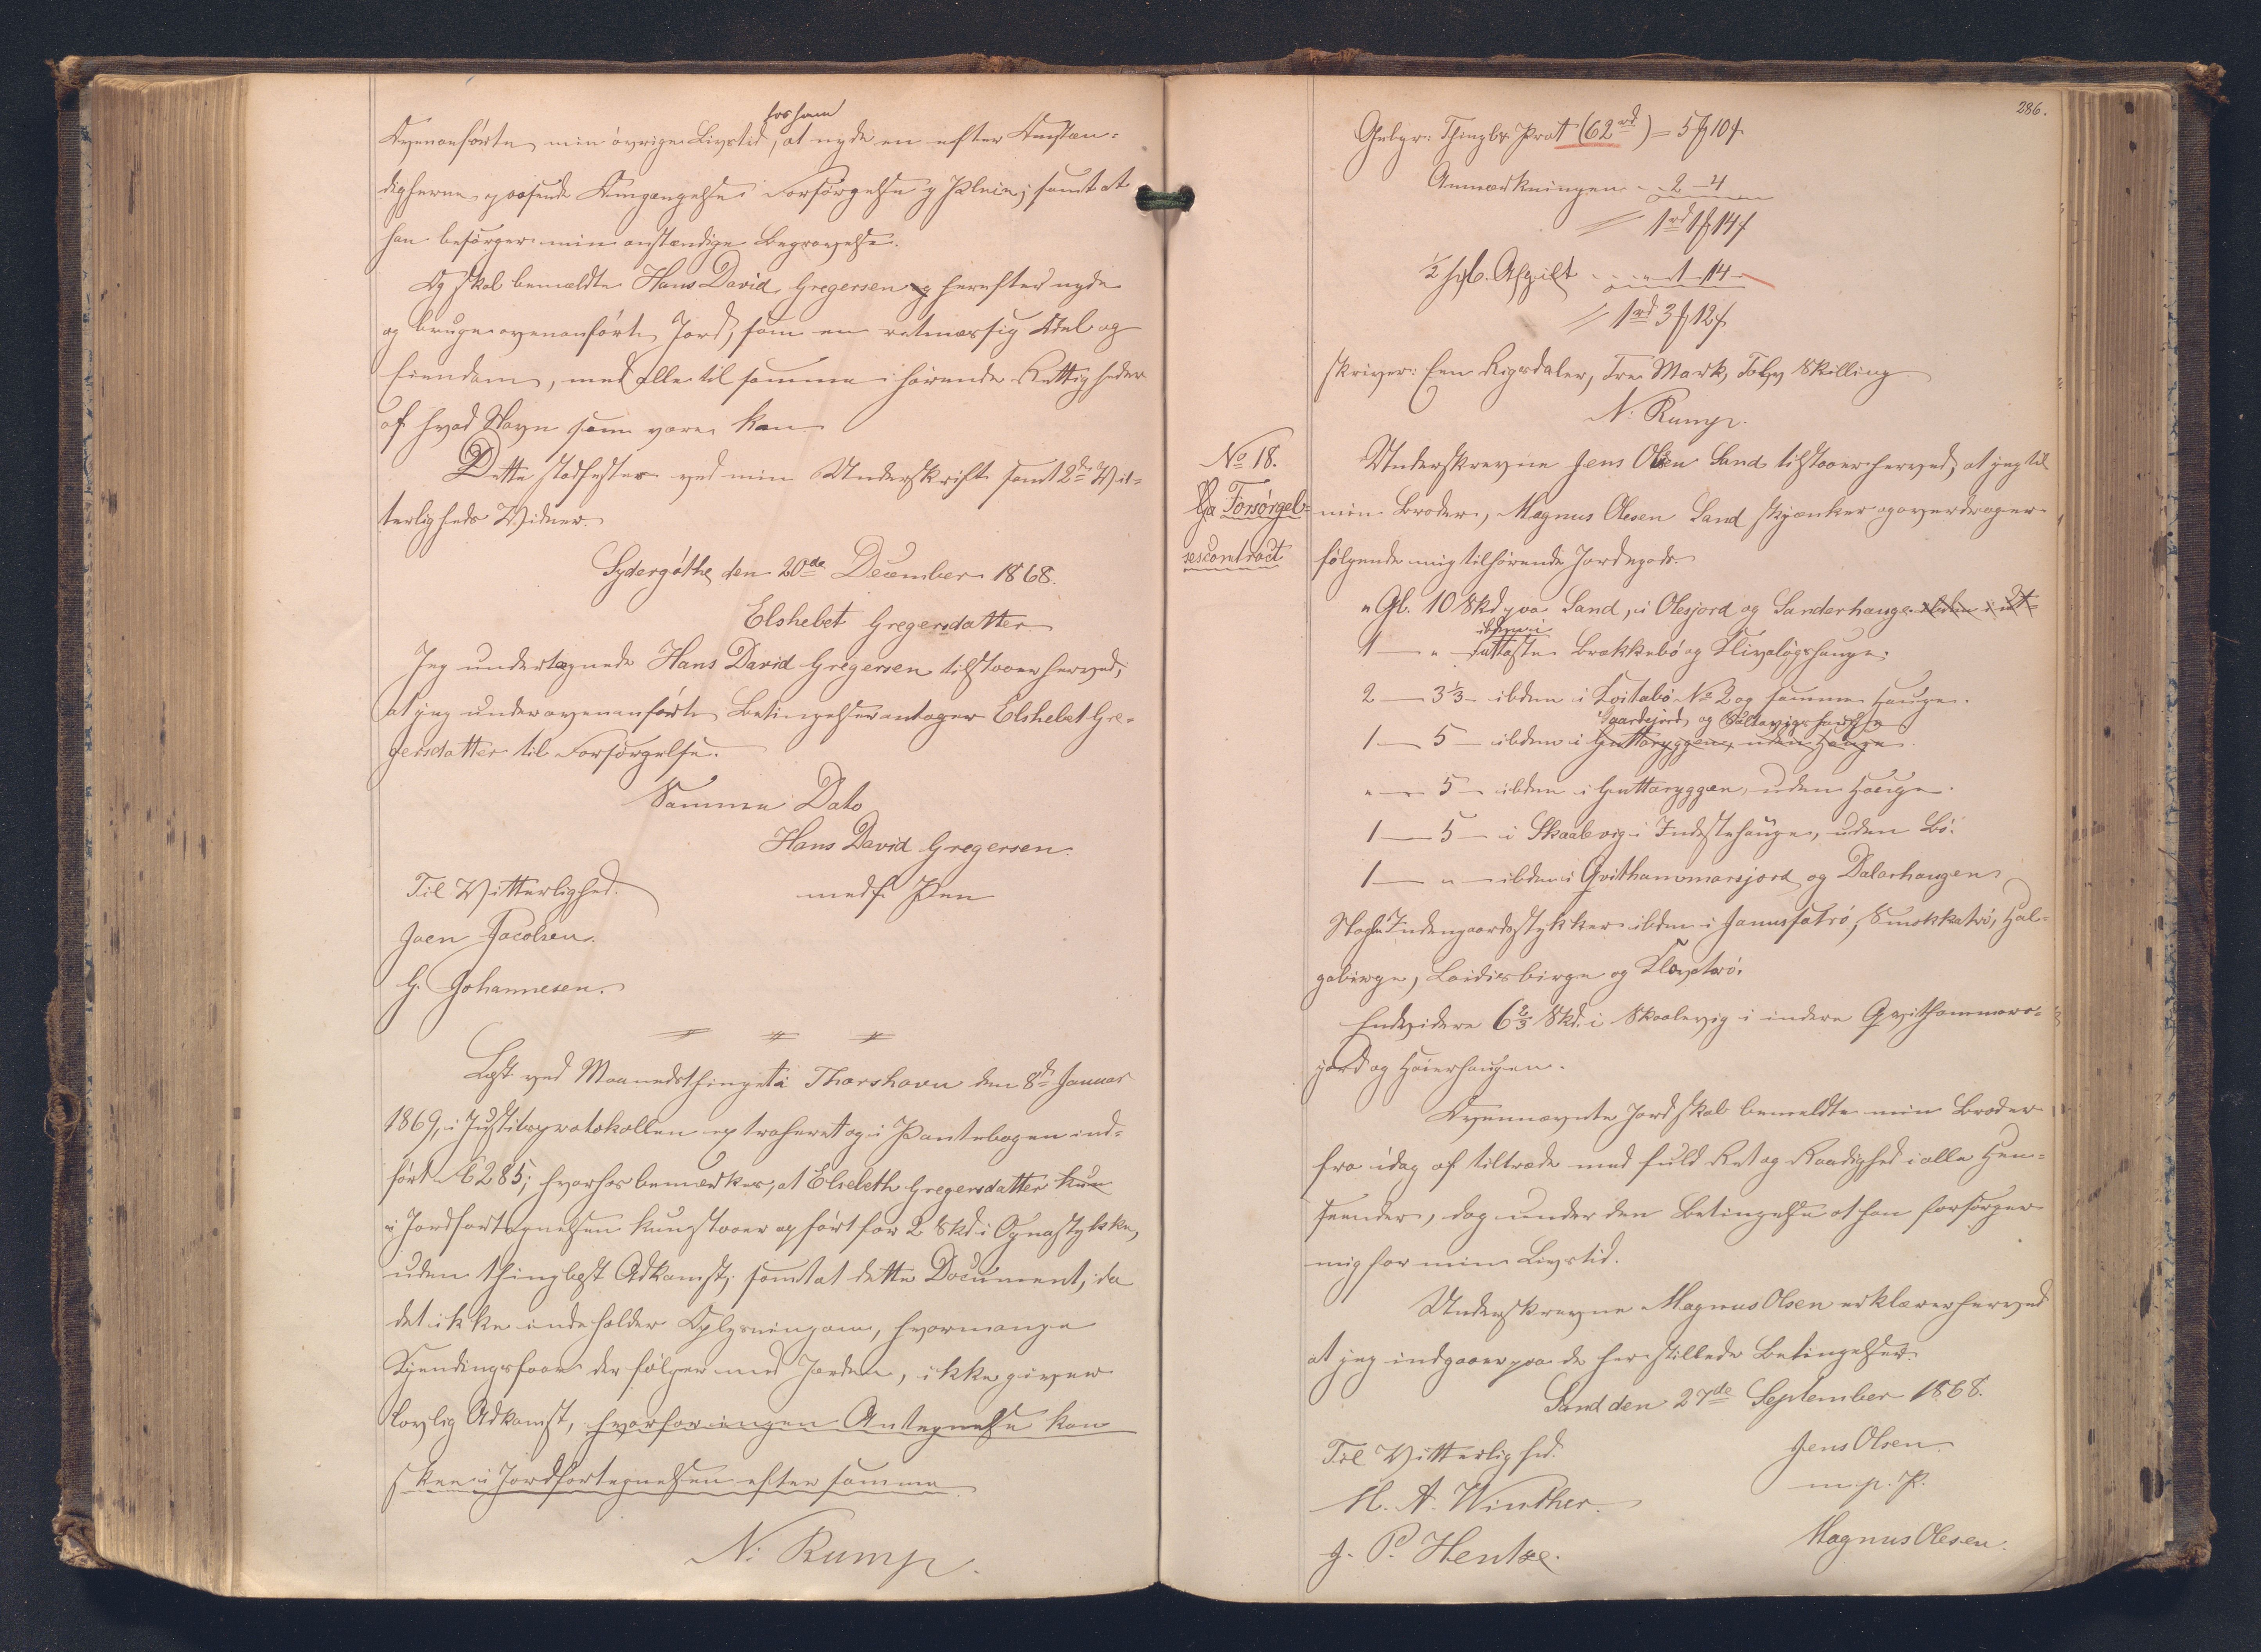 hos ham
Ovenanførte min øvrige Livstid, at nyde en efter Omstæn-
dighederne passende Omgængelse, Forsørgelse og Pleie; samt at
han besørger min anstændige Begravelse.
Og skal bemældte Hans David Gregersen og herefter nyde
og bruge ovenanførte Jord, som en retmæssig Odel og
Eiendom, med alle til samme i hørende Rettigheder
af hvad Navn som være kan
Dette stadfæster ved min Underskrift samt 2de Vit-
terligheds Vidner.
Sydergøthe den 20de December 1868.
Elshebet Gregersdatter
Jeg undertegnede Hans David Gregersen tilstaaer herved,
at jeg under ovenanførte Betingelser antager Elshebet Gre-
gersdatter til Forsørgelse.
Samme Dato
Hans David Gregersen
med f. Pen
Til Vitterlighed.
Joen Jacobsen.
G. Johannesen.
Læst ved Maanedsthinget i Thorshavn den 8de Januar
1869, i Justitsprotokollen extraheret og i Pantebogen ind-
ført 285; hvorhos bemærkes, at Elsebeth Gregersdatter kun
i Jordfortegnelsen kun staaer opført for 2 Skd i Ognastykke,
uden thinglæst Adkomst, samt at dette Document, da
det ikke indeholder Oplysning om, hvormange
Kjendingsfaar der følger med Jorden, ikke giver
lovlig Adkomst, hvorfor ingen Antegnelse kan
skee i Jordfortegnelsen efter samme
N. Rump.
286.
Gebyr: Thingl. Prot (62rd) = 5 10
Anmærkningen 2 - 4
1rd 1 14
1/2 pC. Afgift 1 14
1rd 3 12
skriver: Een Rigsdaler, Tre Mark, Tolv Skilling
N. Rump.
No 18.
Forsørgel-
sescontract
Underskrevne Jens Olsen Sand tilstaaer herved, at jeg til
min Broder, Magnus Olesen Sand skjænker og overdrager
følgende mig tilhørende Jordegods.
" Gl. 10 Skd paa Sand, i Olesjord og Sanderhauge
ibdm i
1 — " Brekkebø og Klivaløgshauge.
2 — 3 1/3 — ibdm i Koitabø No 2 og samme Hauge.
Gaardsjord og
1 — 5 — ibdm i Guttaryggen, uden Hauge
" — 5 — ibdm i Guttaryggen, uden Hauge.
1 — 5 — i Skaalevig i Indstehauge, uden Bø.
1 — " — ibdm i Qvithammarsjord og Dalarhaugen
Nogle Indengaardsstykker ibdm i
gabirge, Laidisbirge og
Endvidere 6 2/3 Skd. i Skaalevig i indere Qvithammars-
jord og Høierhaugen.
Ovennævnte Jord skal bemeldte min Broder
fra idag af tiltræde med fuld Ret og Raadighed i alle Hen-
seender, dog under den Betingelse at han forsørger
mig for min Livstid.
Underskrevne Magnus Olsen erklærer herved
at jeg indgaaer paa de her stillede Betingelser.
Sand den 27de September 1868.
Til Vitterlighed.
Jens Olsen
m. p. P.
M. A. Winther.
Magnus Olesen.
J. P. Hentze.